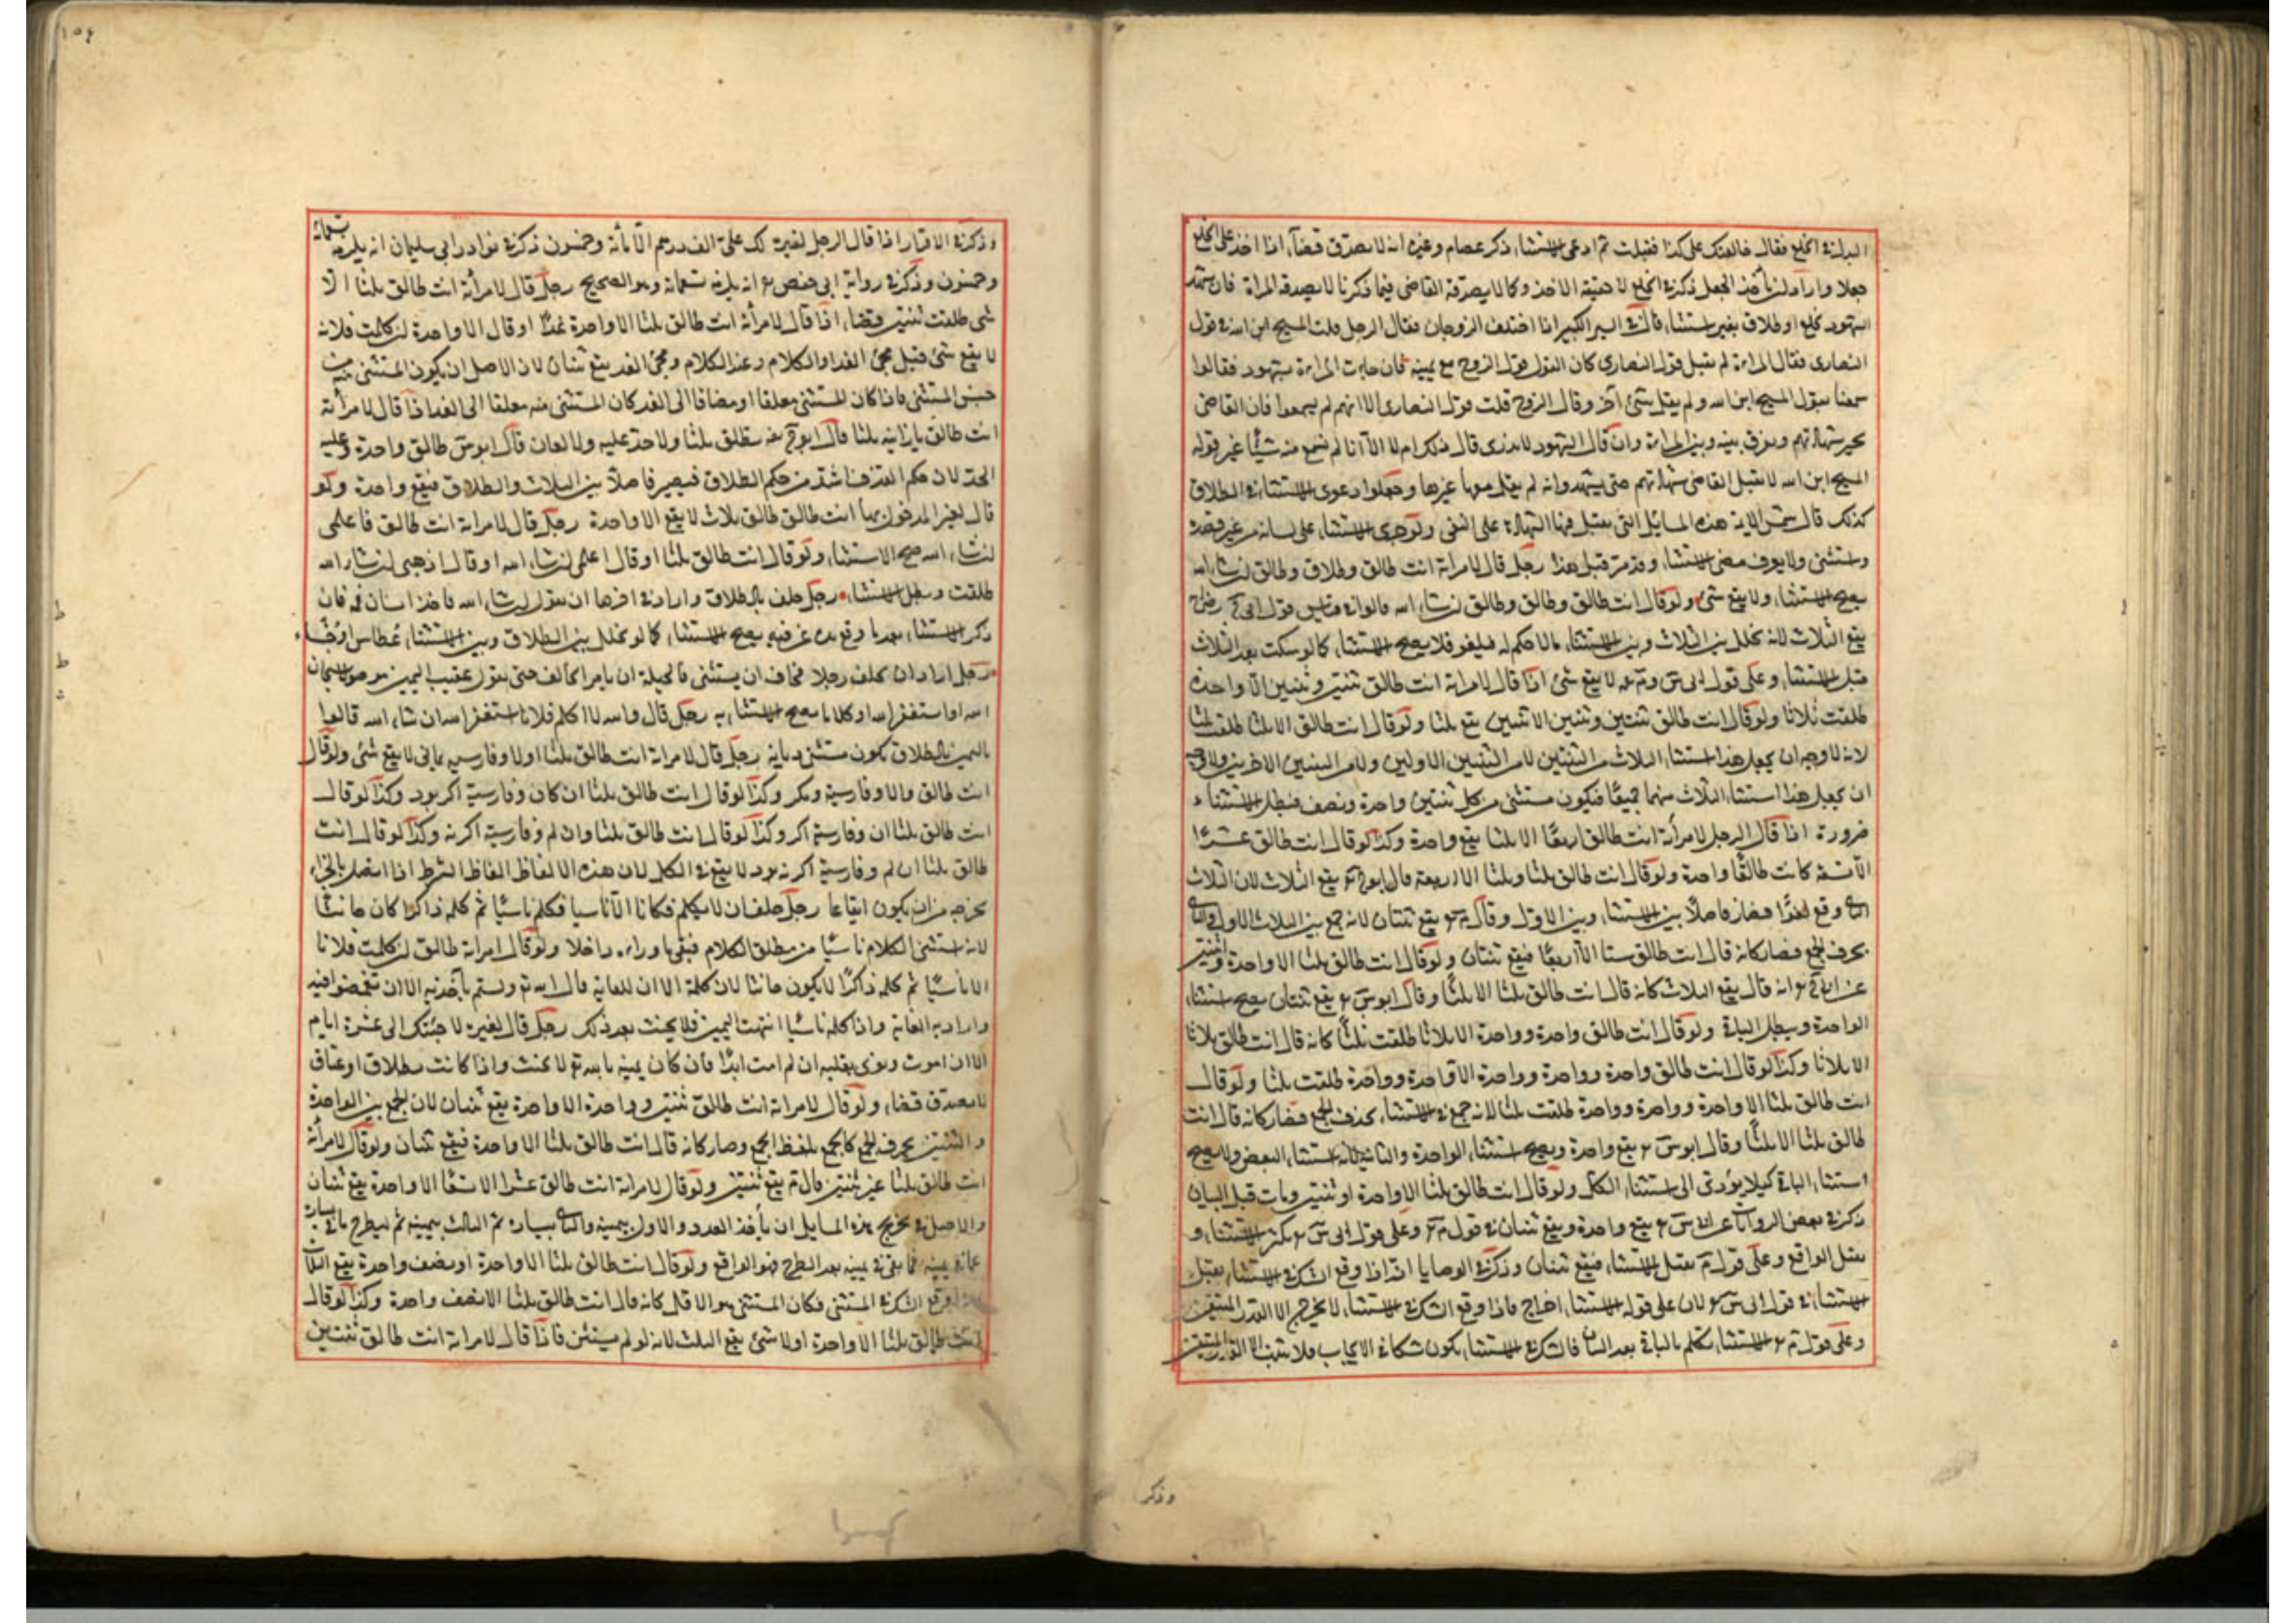 البدل في الخلع فقال خالعتك على كذا فقبلت ثم ادعى الاستثناء ذكر عصام وغيره انه لا يصدق قضآء اذا اخذ على الخلع
جعلا واراد لن يأخذ الجعل ذكر في الخلع لا حقيقة الاخذ وكما لا يصدقه القاضي فيما ذكرنا لا يصدقه المراة فان شهد
الشهود بخلع او طلاق بغير استثناء قال في السير الكبير اذا اختلف الزوجان فقال الرجل قلت المسيح ابن الله في قول
النصارى فقال المراءة لم يقل قول النصارى كان القول قول الزوج مع يمينه فان جاءت المراءة بشهود فقالوا
سمعنا يقول المسيح ابن الله ولم يقل شئ آخر وقال الزوج قلت قول النصارى الا انهم لم يسمعوا فان القاضي
يجيز شهادتهم ويفرق بينه وبين المراءة وان قال الشهود لا ندرى قال ذلك ام لا الا انا لم نسمع منه شيئًا غير قوله
المسيح ابن الله لا يقبل القاضي شهادتهم حتى يشهدوا انه لم يقل معها غيرها وجعلوا دعوى الاستثناء في الطلاق
كذلك قال شمس الايمة هذه المسائل التي يقبل فيها الشهادة على النفي ولو جرى الاستثناء على لسانه من غير قصد
واستثنى ولا يعرف معنى الاستثناء وقد مر قبل هذا رجل قال لامراة انت طالق وطلاق وطالق لن شاء الله
يصح الاستثناء ولا يقع شئ ولو قال انت طالق وطالق وطالق لن شاء الله قالوا في قياس قول ابى ح رضى
يقع الثلاث لانه تخلل بين الثلاث وبين الاستثناء مالا حكم له فيلغو فلا يصح الاستثناء كما لو سكت بعد الثلاث
قبل الاستثناء وعلى قول ابى س وم عه لا يقع شئ اذا قال لامراة انت طالق ثنتين وثنتين الا واحدة
طلقت ثلاثا ولو قال انت طالق ثنتين وثنتين الا ثنتين يقع ثلثا ولو قال انت طالق الا ثلثا طلقت ثلثا
لانه لا وجه ان يجعل هذا استثناء الثلاث من الثنتين لا من الثنتين الاوليين ولا من الثنتين الاخريين ولا وجه
ان يجعل هذا استثناء الثلاث منهما جميعًا فيكون مستثنى من كل ثنتين واحدة ونصف فبطل الاستثناء
ضرورة اذا قال الرجل لامرأته انت طالق اربعًا الا ثلثا يقع واحدة وكذا لو قال انت طالق عشرًا
الا تسعة كانت طالقًا واحدة ولو قال انت طالق ثلثا وثلثا الا اربعة قال ابو ح يقع الثلاث لان الثلاث
الثاني وقع لغوًا فصار فاصلًا بين الاستثناء وبين الاول وقال م يقع ثنتان لانه جمع بين الثلاث الاول والثاني
بحرف الجمع فصار كانه قال انت طالق ستا الا اربعًا فيقع ثنتان ولو قال انت طالق ثلثا الا واحدة وثنتين
عن ابى ح انه قال يقع الثلاث كانه قال انت طالق ثلثا الا ثلثًا وقال ابو س يقع ثنتان يصح استثناء
الواحدة ويبطل الباقي ولو قال انت طالق واحدة وواحدة الا ثلاثا طلقت ثلثًا كانه قال انت طالق ثلاثا
الا ثلاثا وكذا لو قال انت طالق واحدة وواحدة وواحدة الا واحدة وواحدة طلقت ثلثا ولو قال
انت طالق ثلثا الا واحدة وواحدة وواحدة طلقت ثلثا لانه جمع في الاستثناء بحرف الجمع فصار كانه قال انت
طالق ثلثا الا ثلثًا وقال ابو س يقع واحدة ويصح استثناء الواحدة والثانية لانه استثناء البعض ولا يصح
استثناء الباقي كيلا يؤدى الى استثناء الكل ولو قال انت طالق ثلثا الا واحدة او ثنتين ومات قبل البيان
ذكر في بعض الروايات عن ابى س يقع واحدة ويقع ثنتان في قول م وعلى قول ابى س يكثر الاستثناء و
يقل الواقع وعلى قول م يقل الاستثناء فيقع ثنتان وذكر في الوصايا انه اذا وقع الشك في الاستثناء يقل
الاستثناء في قول ابى س لان على قوله الاستثناء اخراج فاذا وقع الشك في الاستثناء لا يخرج الا القدر المتيقن
وعلى قول م الاستثناء تكلم بالباقي بعد الثنيا فالشك في الاستثناء يكون شكا في الايجاب فلا يثبت الا القدر المتيقن
وذكر
١٥٤
وذكر في الاقرار اذا قال الرجل لغيره لك علىّ الف درهم الا مأته وخمسون ذكر في نوادر ابى سليمان انه يلزمه تسعمائة
وخمسون وذكر في رواية ابى حفص انه يلزمه تسعمائة وهو الصحيح رجل قال لامرأته انت طالق ثلثا الا
شئ طلقت ثنتين قضاء اذا قال لامرأته انت طالق ثلثا الا واحدة غدًا او قال الا واحدة لن كلمت فلانه
لا يقع شئ قبل مجئ الغد او الكلام وعند الكلام ومجئ الغد يقع ثنتان لان الاصل ان يكون المستثنى من
جنس المستثنى فاذا كان المستثنى معلقا او مضافا الى الغد كان المستثنى منه معلقا الى الغد اذا قال لامرأته
انت طالق يا زانيه ثلثا قال ابو ح عه يطلق ثلثا ولا حد عليه ولا لعان قال ابو س طالق واحدة وعليه
الحد لان حكم القذف اشد من حكم الطلاق فيصير فاصلًا بين الثلاث والطلاق فيقع واحدة ولو
قال لغير المدخول بها انت طالق طالق ثلاث لا يقع الا واحدة رجل قال لامراة انت طالق فاعلمى
لن شاء الله صح الاستثناء ولو قال انت طالق ثلثا او قال اعلمى لن شاء الله او قال اذهبى لن شاء الله
طلقت وبطل الاستثناء رجل حلف بالطلاق واراد في اخرها ان يقول لن شاء الله فاخذ انسان فمه فان
ذكر الاستثناء بعد ما رفع يده عن فيه يصح الاستثناء كما لو تخلل بين الطلاق وبين الاستثناء عُطاس او جُشاء
رجل اراد ان يحلف رجلا فخاف ان يستثنى فالحيلة ان يامر الحالف حتى يقول عقيب اليمين موصولا سبحان
الله او استغفر الله او كلاما يصح الاستثناء به رجل قال والله لا اكلم فلانا استغفر الله ان شاء الله قالوا
باليمين بالطلاق يكون مستثنى ديانة رجل قال لامراة انت طالق ثلثا اولا وفارسيه يا نى لا يقع شئ ولو قال
انت طالق والا وفارسية ومكر وكذا لو قال انت طالق ثلثا ان كان وفارسية اكر بود وكذا لو قال
انت طالق ثلثا ان وفارسية اكر وكذا لو قال انت طالق ثلثا وان لم وفارسية اكرنه وكذا لو قال انت
طالق ثلثا ان لم وفارسية اكر نه بود لا يقع في الكل لان هذه الالفاظ الفاظ الشرط اذا اتصل بالجزاء
يخرجه من ان يكون ايقاعا رجل حلف ان لا يكلم فلانا الا ناسيا فكلم ناسيًا ثم كلمه ذاكرا كان حانثا
لانه استثنى الكلام ناسيًا من مطلق الكلام فبقى ما وراءه داخلا ولو قال امراته طالق لن كلمت فلانا
الا ناسيًا ثم كلمه ذاكرًا لا يكون حانثا لان كلمة الا ان للغاية قال الله تعالى ولستم بآخذيه الا ان تغمضوا فيه
واراد به الغاية واذا كلمه ناسيًا انتهت اليمين فلا يحنث بعد ذلك رجل قال لغيره لاجيئنك الى عشرة ايام
الا ان اموت ونوى بقلبه ان لم امت ابدًا فان كان يمينه بالله تعالى لا يحنث واذا كانت بطلاق او عتاق
لا يصدق قضاء ولو قال لامراة انت طالق ثنتين وواحدة الا واحدة يقع ثنتان لان الجمع بين الواحدة
والثنتين بحرف الجمع كالجمع بلفظ الجمع وصار كانه قال انت طالق ثلثا الا واحدة فيقع ثنتان ولو قال لامرأته
انت طالق ثلثا غير ثنتين قال م يقع ثنتين ولو قال لامراة انت طالق عشرا الا تسعًا الا واحدة يقع ثنتان
والاصل في تخريج هذه المسايل ان يأخذ العدد والاول بيمينه والثاني بيساره ثم الثالث بيمينه ثم يطرح ما في يساره
عما في يمينه فما بقى في يمينه بعد الطرح فهو الواقع ولو قال انت طالق ثلثا الا واحدة او نصف واحدة يقع الثلاث
وقع الشك في المستثنى فكان المستثنى هو الاقل كانه قال انت طالق ثلثا الا نصف واحدة وكذا لو قال
انت طالق ثلثا الا واحدة اولا شئ يقع الثلث لانه لو لم يستثن فاذا قال لامراة انت طالق ثنتين